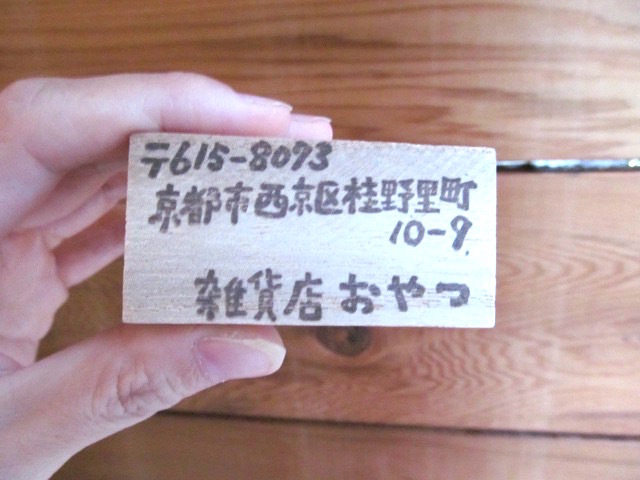 〒615-8073
京都市西京区桂野里町
10-9.
雑貨店 おやつ